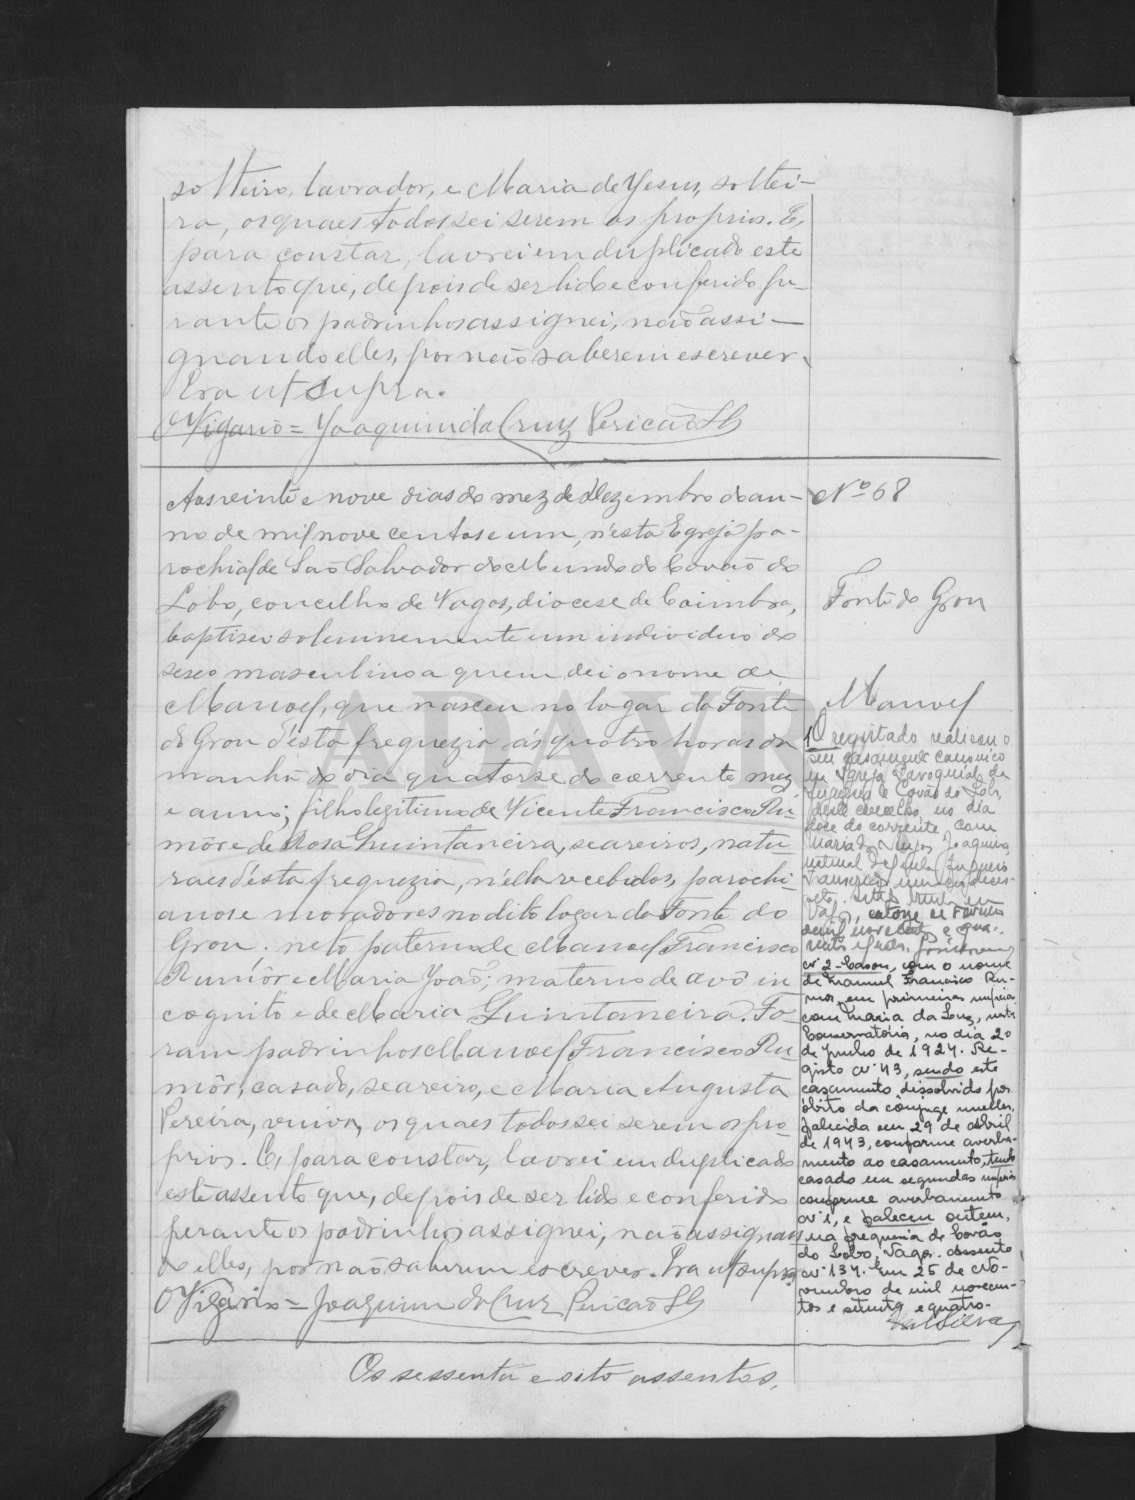 solteiro, lavrador, e Maria de Jesus, soltei-
ra, os quaes todos sei serem os proprios. E,
para constar, lavrei em duplicado este
assento que, depois de ser lido e conferido pe-
rante os padrinhos assignei, não assi-
gnando elles, por não saberem escrever.
Era ut supra.
O Vigario = Joaquim da Cruz Pericão
Aos veinte e nove dias do mez de Dezembro do an-
no de mil nove centos e um, n'esta Egreja pa-
rochial de São Salvador do Mundo do Covão do
Lobo, concelho de Vagos, diocese de Coimbra,
baptisei solemnemente um individuo do
sexo masculino a quem dei o nome de
Manoel, que nasceu no logar da Fonte
do Grou d'esta freguezia ás quatro horas da
manhã do dia quatorse do corrente mez
e anno; filho legitimo de Vicente Francisco Ru-
môr e de Rosa Quintaneira, seareiros, natu-
raes d'esta freguezia, n'ella recebidos, parochi-
anos e moradores no dito logar da Fonte do
Grou; neto paterno de Manoel Francisco
Rumôr e Maria João; materno de avô in
cognito e de Maria Quintaneira. Fo-
ram padrinhos Manoel Francisco Ru-
môr, casado, seareiro, e Maria Augusta
Pereira, viuva, os quaes todos sei serem os pro-
prios. E, para constar, lavrei em duplicado
este assento que, depois de ser lido e conferido
perante os padrinhos assignei, não assignan
do elles, por não saberem escrever. Era ut supra
O Vigario = Joaquim da Cruz Pericão
Os sessenta e oito assentos.
Nº 68
Fonte do Grou
Manoel
1 O registado realisou o
seu casamento canonico
na Igreja Paroquial da
freguesia de Covão do Lobo,
deste concelho, no dia
doze do corrente, com
Maria Joaquina,
natural
catorze de Fevereiro
de mil novecentos e qua-
renta e
nº 2 - Casou, com o nome
de Manuel Francisco Ru-
mor, em primeiras nupcias,
com Maria da Luz, nesta
Conservatória, no dia 20
de Junho de 1927. Re-
gisto nº 43, sendo este
casamento dissolvido por
óbito da cônjuge mulher,
falecida em 29 de Abril
de 1943, conforme averba-
mento ao casamento, tendo
casado em segundas nupcias
conforme averbamento
nº 1, e faleceu ontem,
na freguesia de Covão
do Lobo, Vagos. Assento
nº 134. Em 25 de No-
vembro de mil novecen-
tos e setenta e quatro.
Silva
ADAVR